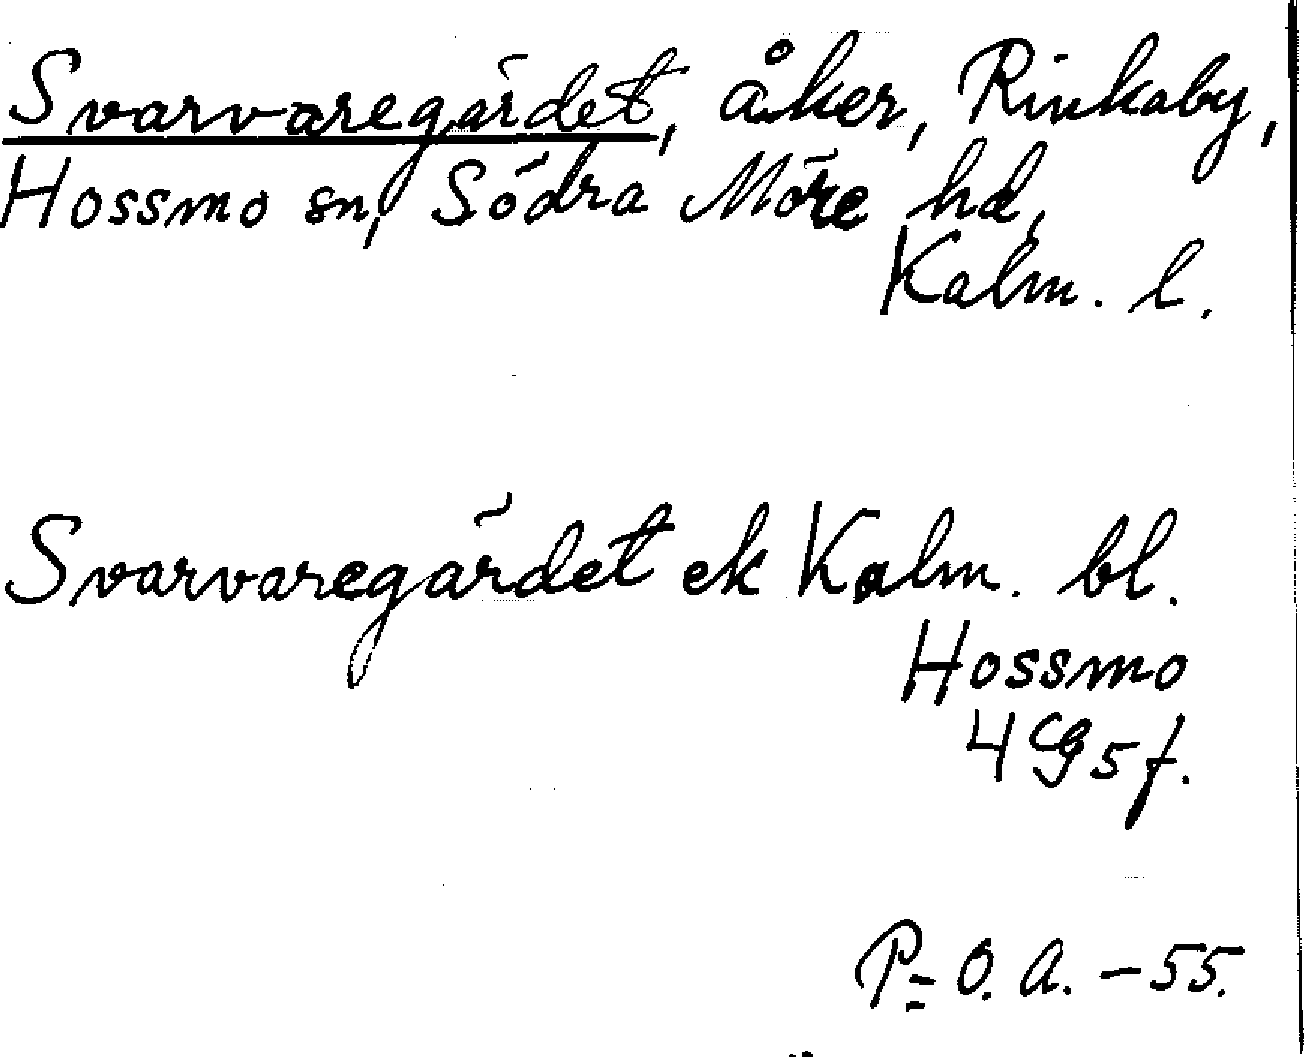 Svarvaregärdet, åker, Rinkaby,
Hossmo sn, Södra Möre hd,
Kalm. l.
Svarvaregärdet ek Kalm. bl.
Hossmo
4 G 5 f.
P-O. A. - 55.